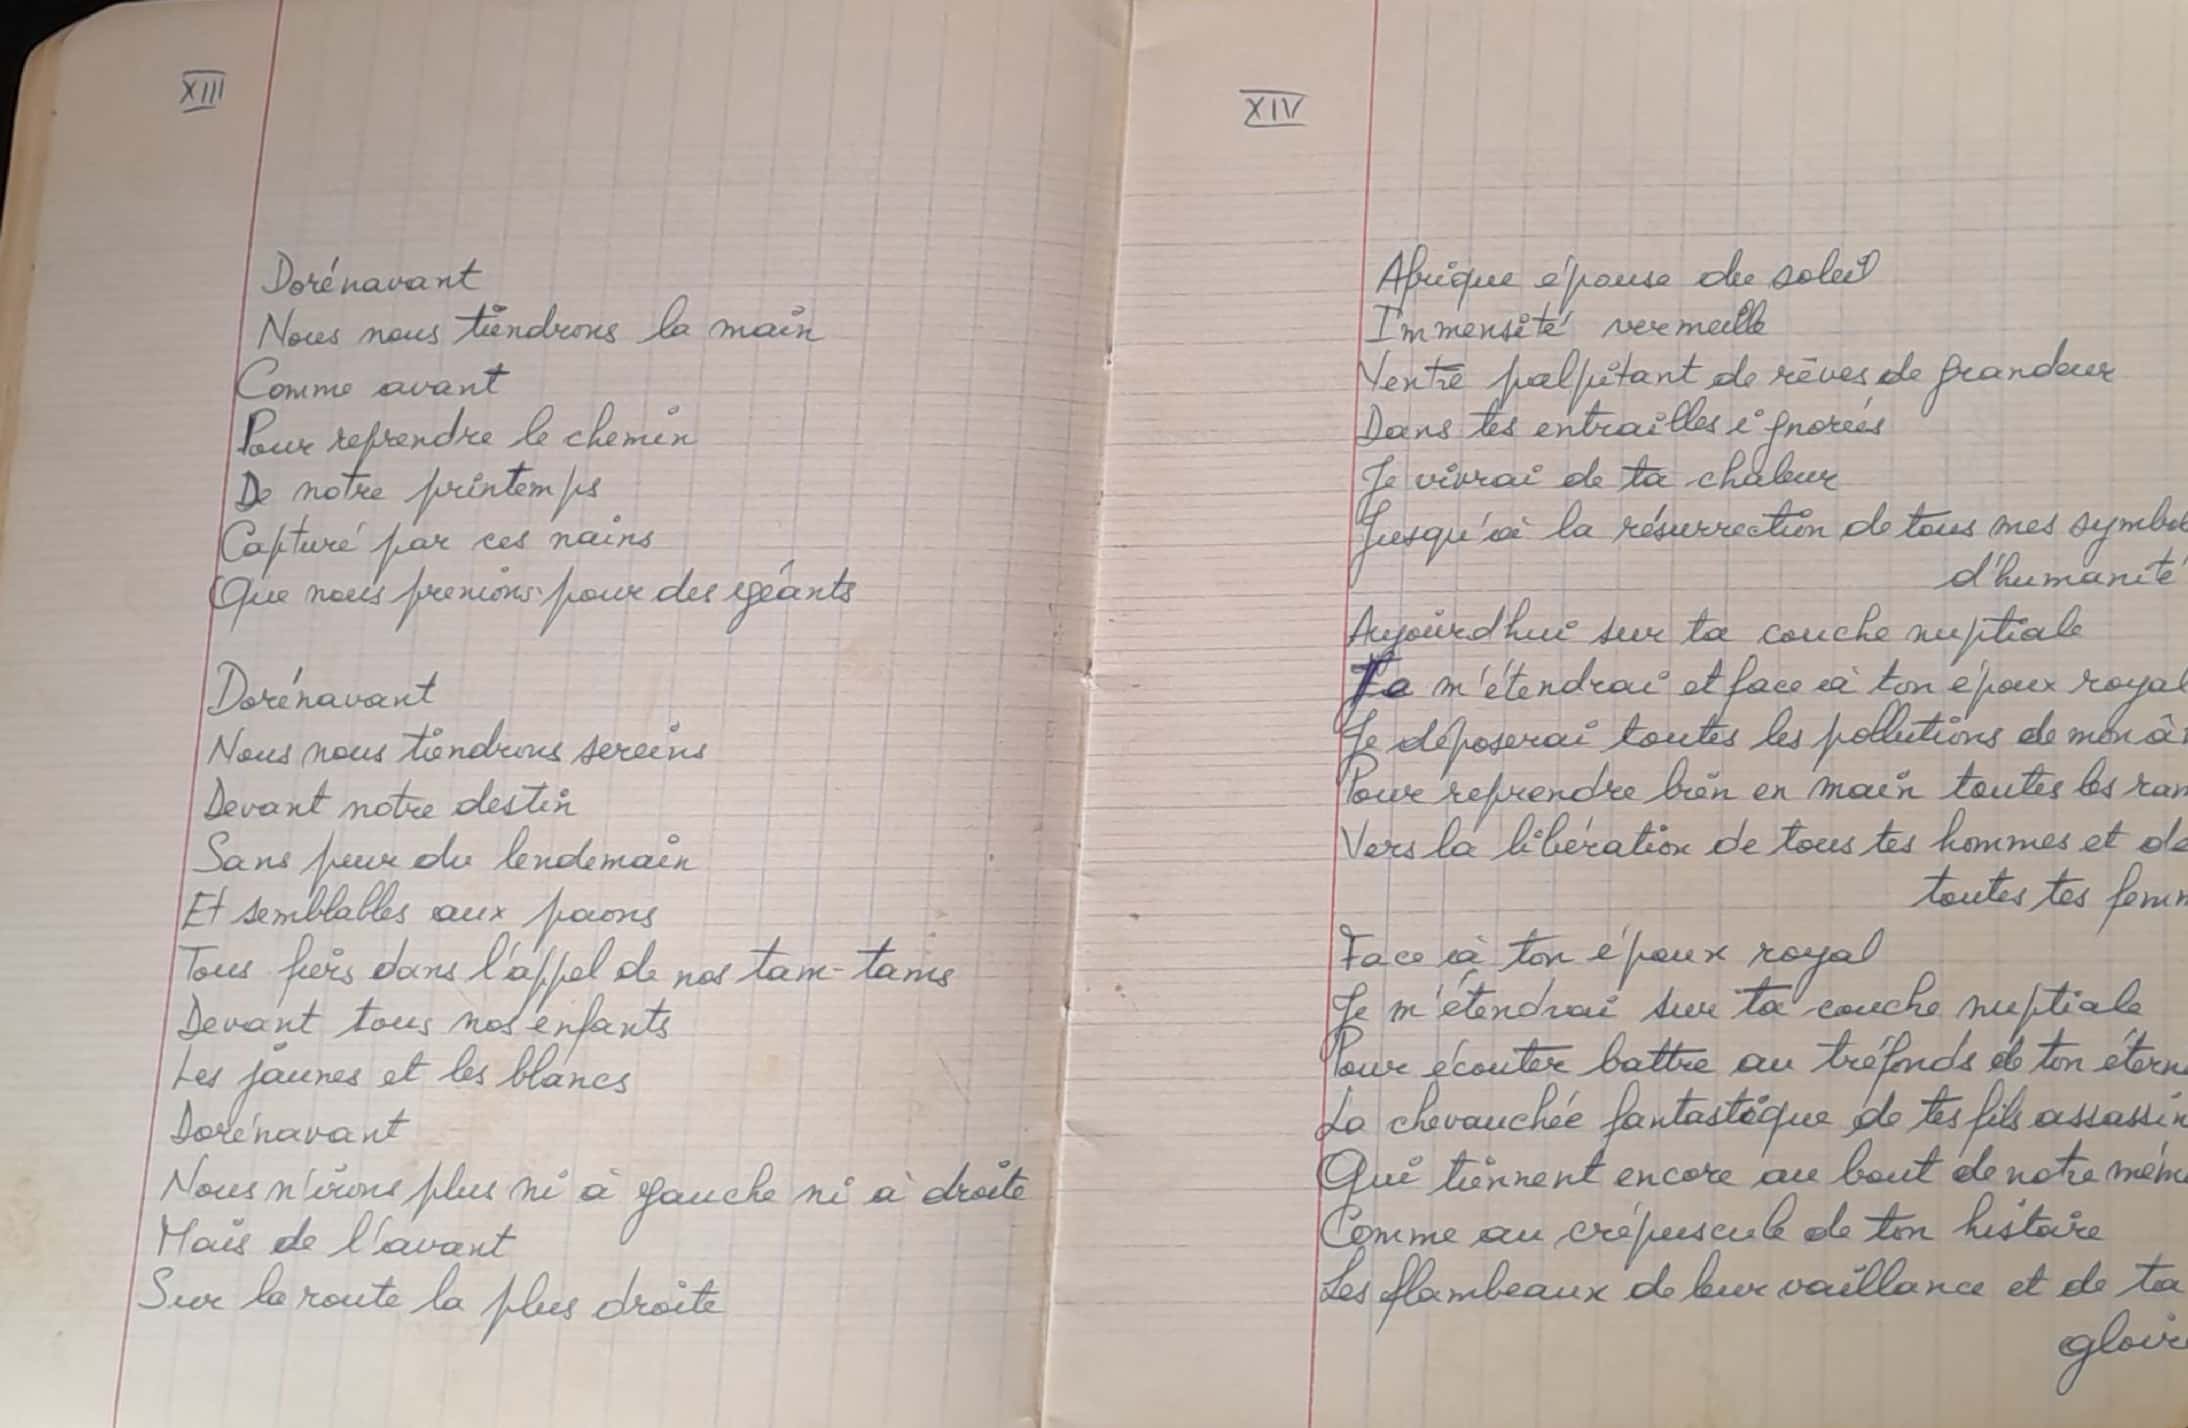 XIII
Dorénavant
Nous nous tiendrons la main
Comme avant
Pour reprendre le chemin
De notre printemps
Capturé par ces nains
Que nous prenions pour des géants
Dorénavant
Nous nous tiendrons sereins
Devant notre destin
Sans peur du lendemain
Et semblables aux paons
Tous fiers dans l'appel de nos tam-tams
Devant tous nos enfants
Les jaunes et les blancs
Dorénavant
Nous n'irons plus ni à gauche ni à droite
Mais de l'avant
Sur la route la plus droite
XIV
Afrique épouse du soleil
Immensité vermeille
Ventre palpitant de rêves de grandeur
Dans tes entrailles ignorées
Je vivrai de ta chaleur
Jusqu'à la résurrection de tous mes symbol
d'humanité
Aujourd'hui sur ta couche nuptiale
Je m'étendrai et face à ton époux royal
Je déposerai toutes les pollutions de mon â
Pour reprendre bien en main toutes les ram
Vers la libération de tous tes hommes et de
toutes tes femm
Face à ton époux royal
Je m'étendrai sur ta couche nuptiale
Pour écouter battre au tréfonds de ton étern
La chevauchée fantastique de tes fils assassin
Qui tiennent encore au bout de notre mém
Comme au crépuscule de ton histoire
Les flambeaux de leur vaillance et de ta
gloire